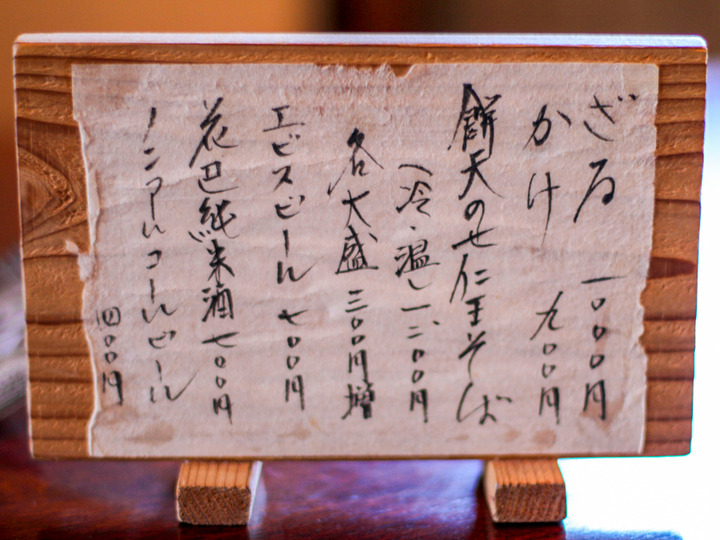 ざる 一〇〇〇円
かけ 九〇〇円
餅天の七仁王そば
(冷・温) 一、二〇〇円
各大盛 三〇〇円増
エビスビール 七〇〇円
花巴純米酒 七〇〇円
ノンアルコールビール
四〇〇円